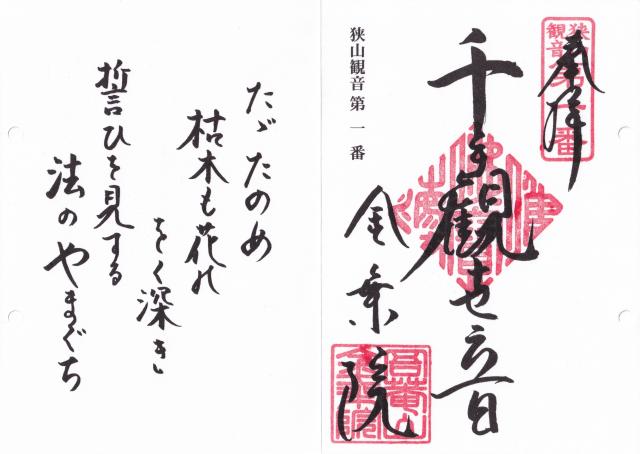 奉拝
狭山観音第一番
千手観世音
金乗院
吾菴山金乗院
狭山観音 第一番
たゞたのめ
枯木も花の
さく深き
誓ひを見する
法のやまぐち